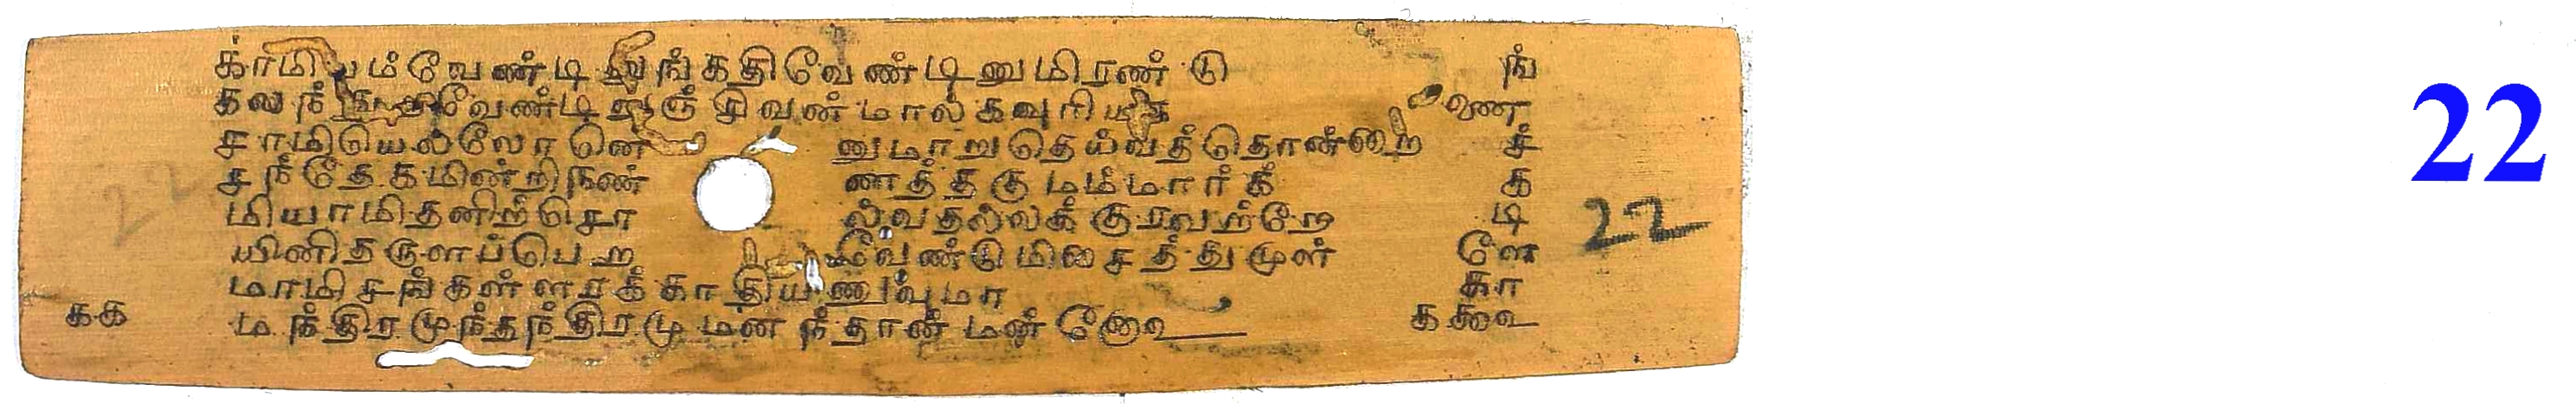 காமியம்வேண்டிலங்கதிவேண்டினுமிரண்டு ங்
கலந் வேண்டி ஞ்சிவண்மால்கவுரி ண
சாமியெல்லோரனெ னுமாறுதெய்வத்தொன்றை ச்
சந்தேகமின்றிநண் ணத்தகுமம்மார்க் க
மியாமிதனிற்சொ ல்வதல்லக்குரவற்றே டி
யினிதருளப்பெற வேண்டுமிசைத்துமூள் ளே
மாமிசங்கள்ளரக்காதியணுவுமா கா
கக மந்திரமூந்தந்திரமுமனந்தான்மன்னே ககூ
22
22